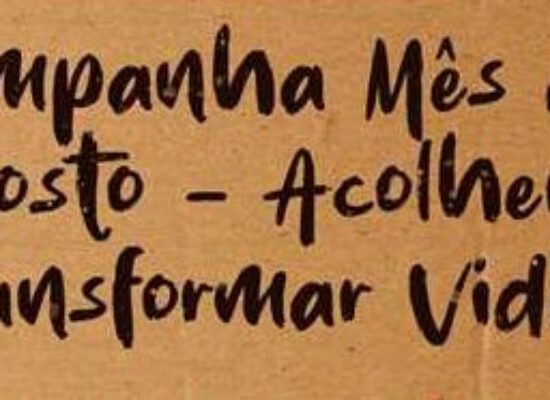 mpanha Mês
osto - Acolhe
ansformar Vid